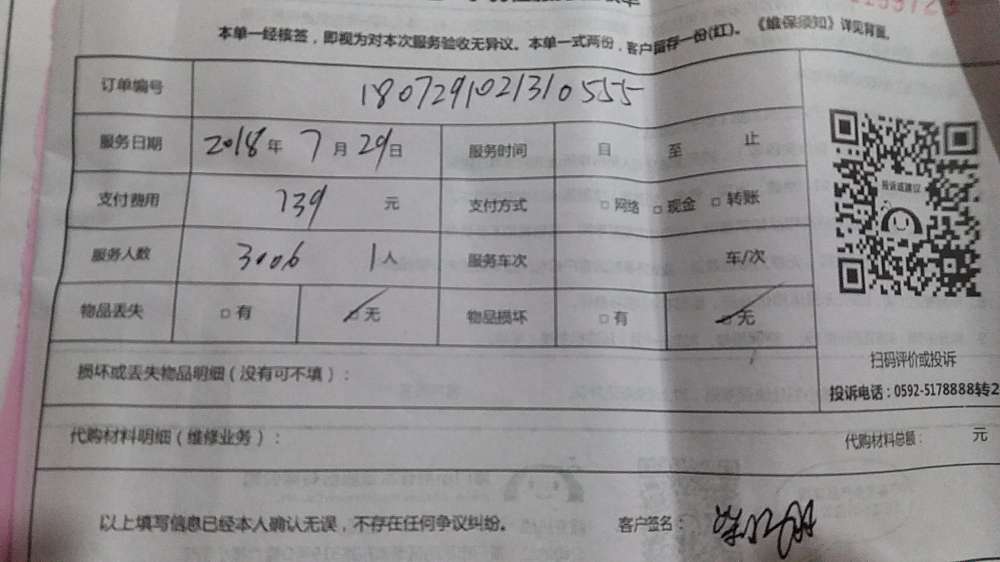 本单一经核签，即视为对本次服务验收无异议。本单一式两份，客户留存一份(红)。《维保须知》详见背面。
订单编号 1807291021310555
服务日期 2018年 7月29日 服务时间 自 至 止
支付费用 139 元 支付方式 □网络 □现金 □转账
服务人数 3006 1人 服务车次 车/次
物品丢失 □有 ☑无 物品损坏 □有 ☑无
投诉或建议
扫码评价或投诉
损坏或丢失物品明细（没有可不填）：
投诉电话：0592-5178888转2
代购材料明细（维修业务）： 代购材料总额： 元
以上填写信息已经本人确认无误，不存在任何争议纠纷。 客户签名：